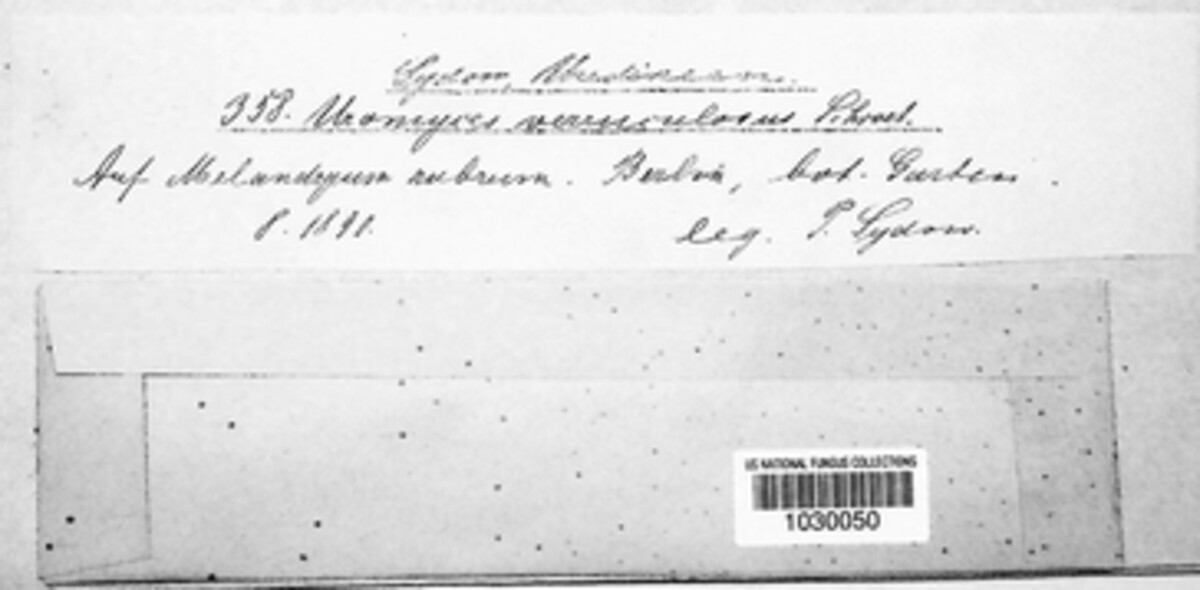 Sydow, Uredineen.
358. Uromyces verruculosus Schroet.
Auf Melandryum rubrum. Berlin, bot. Garten.
8. 1891. leg. P. Sydow.
US NATIONAL FUNGUS COLLECTIONS
1030050